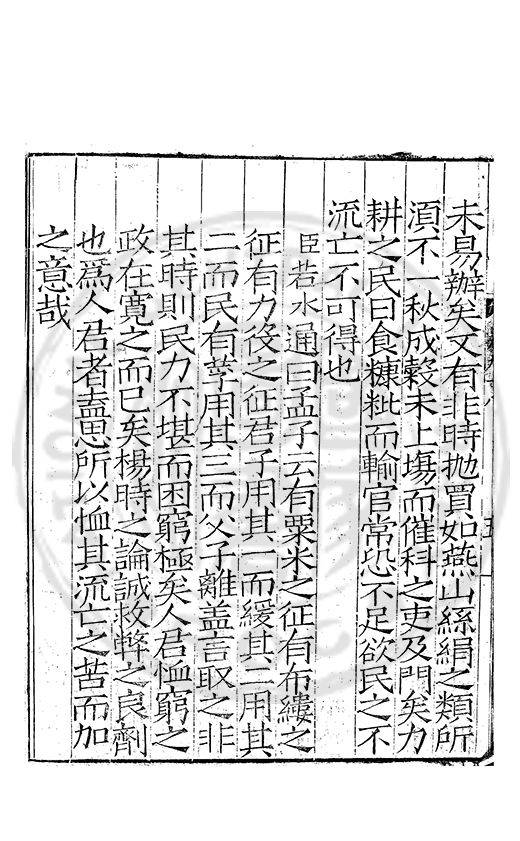 未易辦矣又有非時抛買如燕山絲絹之類所
湏不一秋成穀未上塲而催科之吏及門矣力
耕之民曰食糠粃而輸官常恐不足欲民之不
流亡不可得也
臣若水通曰孟子云有粟米之征有布縷之
征有力役之征君子用其一而緩其二用其
二而民有莩用其三而父子離盖言取之非
其時則民力不堪而困窮極矣人君恤窮之
政在寛之而已矣楊時之論誠救弊之良劑
也爲人君者盍思所以恤其流亡之苦而加
之意哉